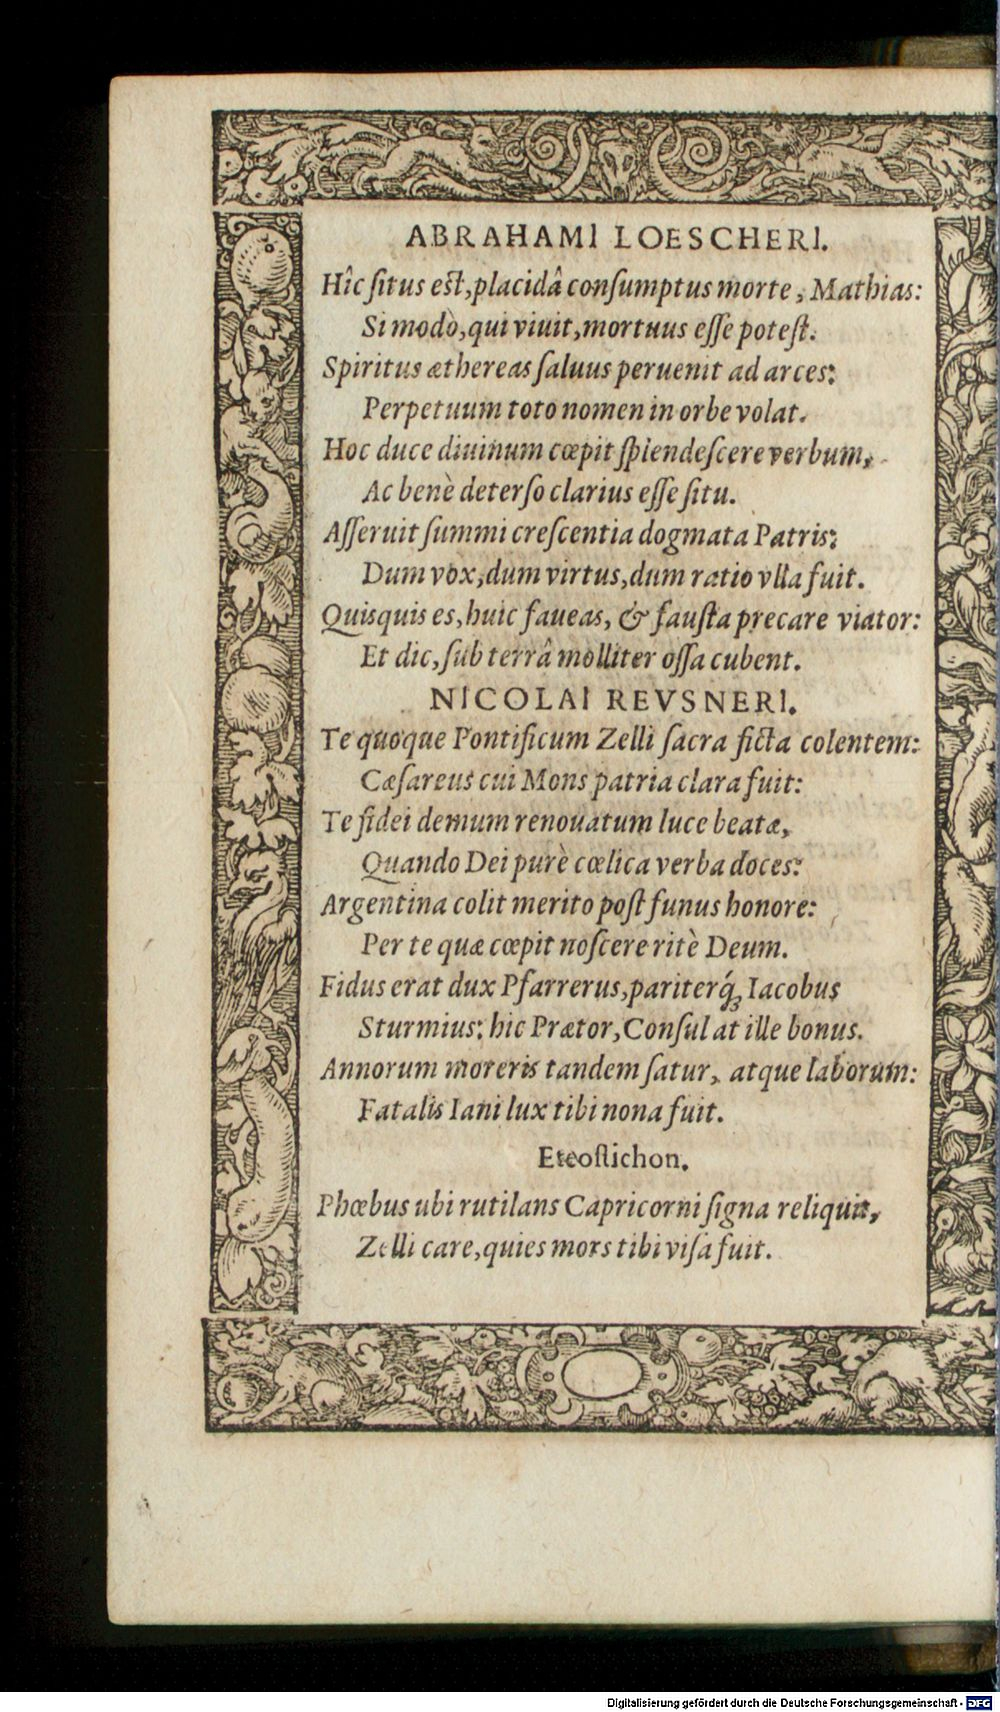 ABRAHAMI LOESCHERI.
Hîc ſitus eſt, placidâ conſumptus morte, Mathias:
Si modò, qui viuit, mortuus eſſe poteſt.
Spiritus æthereas ſaluus peruenit ad arces:
Perpetuum toto nomen in orbe volat.
Hoc duce diuinum cœpit ſplendeſcere verbum,
Ac benè deterſo clarius eſſe ſitu.
Aſſeruit ſummi creſcentia dogmata Patris:
Dum vox, dum virtus, dum ratio vlla fuit.
Quisquis es, huic faueas, & fauſta precare viator:
Et dic, ſub terrâ molliter oſſa cubent.
NICOLAI REVSNERI.
Te quoque Pontificum Zelli ſacra ficta colentem:
Cæſareus cui Mons patria clara fuit:
Te fidei demum renouatum luce beatæ,
Quando Dei purè cœlica verba doces:
Argentina colit merito poſt funus honore:
Per te quæ cœpit noſcere ritè Deum.
Fidus erat dux Pfarrerus, pariterq́ꝫ Iacobus
Sturmius: hic Prætor, Conſul at ille bonus.
Annorum moreris tandem ſatur, atque laborum:
Fatalis Iani lux tibi nona fuit.
Eteoſtichon.
Phœbus ubi rutilans Capricorni ſigna reliquit,
Zelli care, quies mors tibi viſa fuit.
Digitalisierung gefördert durch die Deutsche Forschungsgemeinschaft - DFG